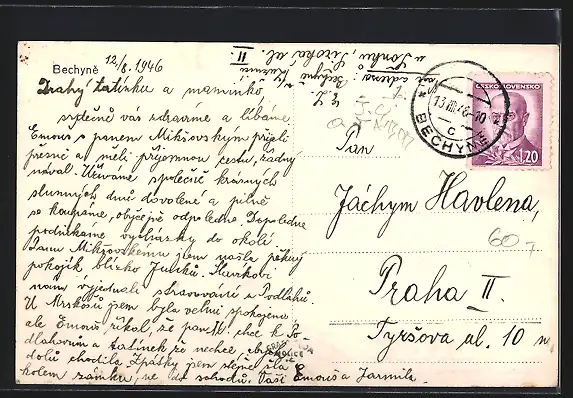 Bechyně 12/8. 1946
Drahý tatínku a maminko
srdečně vás zdravíme a líbáme.
Emouš s panem Mikšovským přijeli
přesně a měli příjemnou cestu, žádný
nával. Užíváme společně krásných
slunných dnů dovolené a pilně
se koupáme, obyčejně odpoledne. Dopoledne
podnikáme vycházky do okolí.
Panu Mikšovskému jsem našla pěkný
pokojík blízko
nám vyjednala stravování u Podlahů.
U jsem byla velmi spokojena
ale Emouš říkal, že pan M. chce k Po-
dlahovům a tatínek že nechce
dolů chodila. Zpátky jsem stejně šla
kolem zámku, ne do schodů. Vaši Emouš a Jarmila.
II
adresa: Bechyně
u Široká ul.
ČESKOSLOVENSKO
1.20
13.VIII.46-10
BECHYNĚ
C
Pan
Jáchym Havlena,
60
Praha II.
Tyršova ul. 10 n